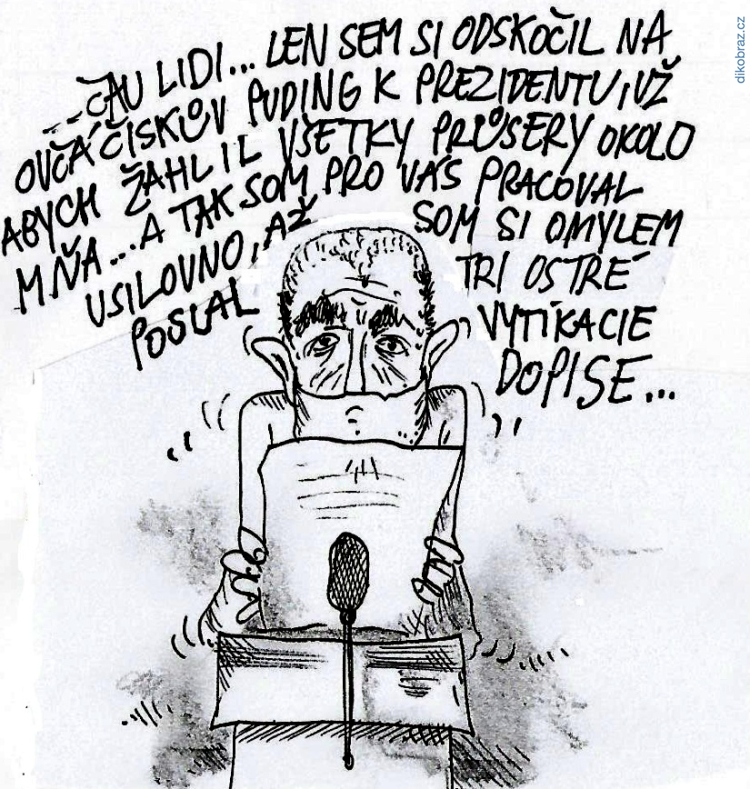 ...ČAU LIDI... LEN SEM SI ODSKOČIL NA
OVČÁČISKŮV PUDING K PREZIDENTU, UŽ
ABYCH ŽAHLIL VŠETKY PRŮSERY OKOLO
MŇA... A TAK SOM PRO VÁS PRACOVAL
USILOVNO, AŽ SOM SI OMYLEM
POSLAL TRI OSTRÉ
VYTÍKACIE
DOPISE...
dikobraz.cz